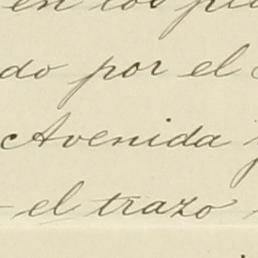 en los pl
do por el
Avenida y
el trazo